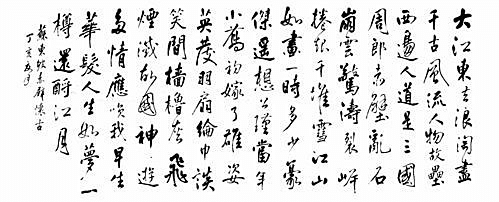 大江東去浪淘盡
千古風流人物故壘
西邊人道是三國
周郎赤壁亂石
崩雲驚濤裂岸
捲起千堆雪江山
如畫一時多少豪
傑遙想公瑾當年
小喬初嫁了雄姿
英發羽扇綸巾談
笑間檣櫓灰飛
煙滅故國神遊
多情應笑我早生
華髮人生如夢一
樽還酹江月
蘇東坡赤壁懷古
丁亥